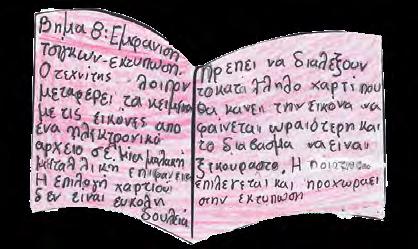 Βημα 8: Εμφανιση
τσιγκων-εκτυπωση.
Ο τεχνίτης λοιπον
μεταφέρει τα κειμενα
με τις εικόνες απο
ένα ηλεκτρονικό
αρχειο σε μια μαλακή
μεταλλική επιφανεια
Η επιλογή χαρτιού
δεν ειναι ευκολη
δουλειά
Πρεπει να διαλέξουν
το κατάλληλο χαρτί που
θα κανει την εικόνα να
φαινεται ωραιότερη και
το διαβασμα να ειναι
ξεκουραστο. Η ποιοτητα
επιλεγεται και προχωραει
στην εκτυπωση